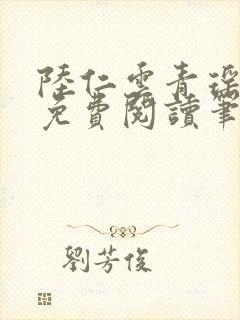 陸仁雲青瑤
免費閱讀筆
劉芳俊